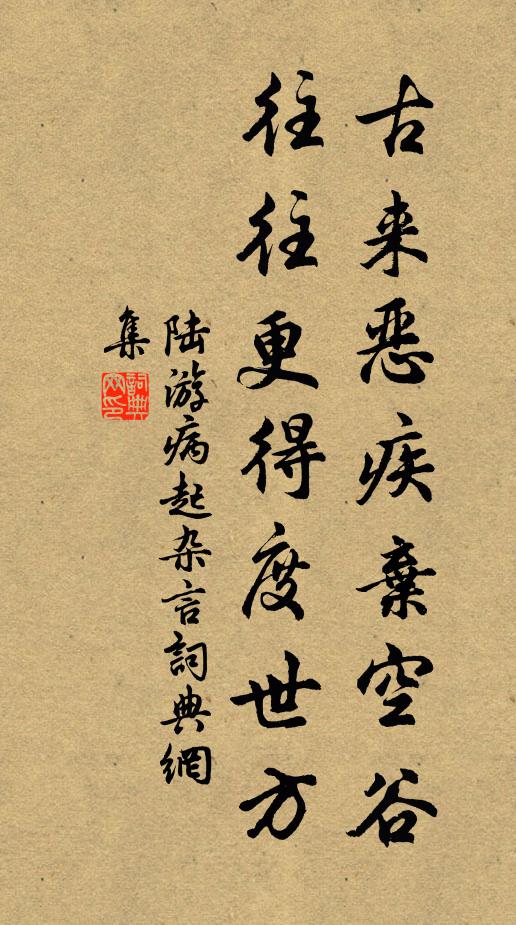 古来惡疾棄空谷
往往更得度世方
陆游病起杂言詞典網
集
詞典網印